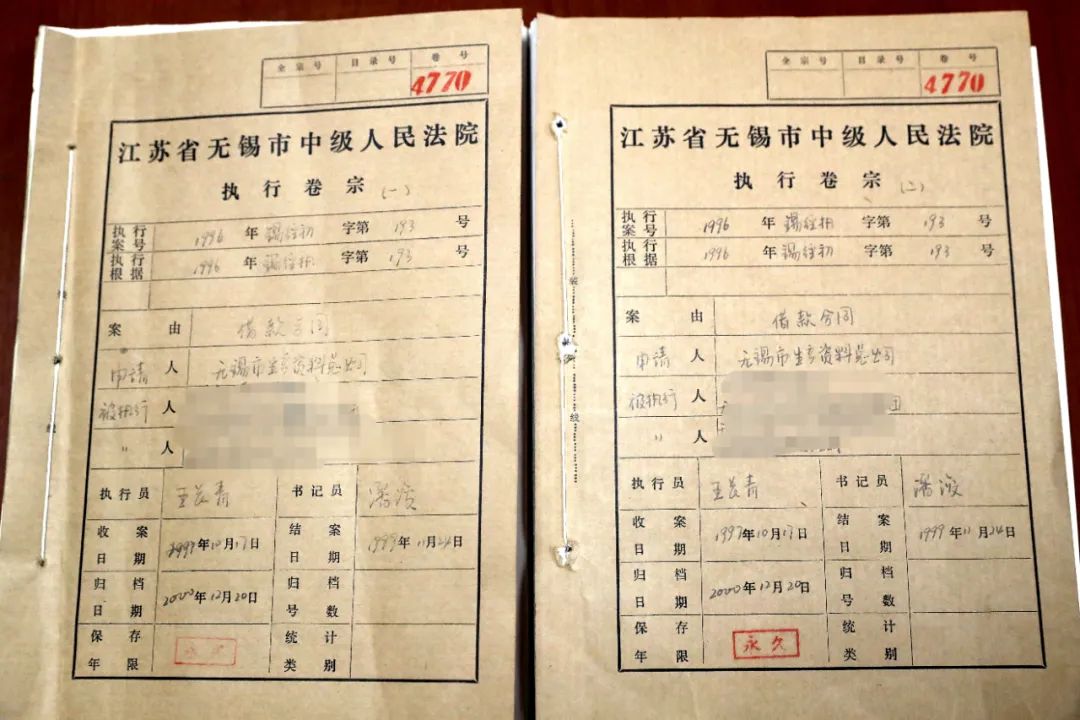 全宗号 目录号 卷号
4770
江苏省无锡市中级人民法院
执行卷宗(一)
执行案号 1996年锡经初字第193号
执行根据 1996年锡经执字第193号
案由 借款合同
申请人 无锡市生产资料总公司
被执行人
〃人
执行员 王长青 书记员 潘浚
收案日期 1997年10月17日 结案日期 1999年11月24日
归档日期 2000年12月20日 归档号数
保存年限 永久 统计类别
装
线
全宗号 目录号 卷号
4770
江苏省无锡市中级人民法院
执行卷宗(二)
执行案号 1996年锡经初字第193号
执行根据 1996年锡经初字第193号
案由 借款合同
申请人 无锡市生产资料总公司
被执行人
〃人
执行员 王长青 书记员 潘浚
收案日期 1997年10月17日 结案日期 1999年11月24日
归档日期 2000年12月20日 归档号数
保存年限 永久 统计类别